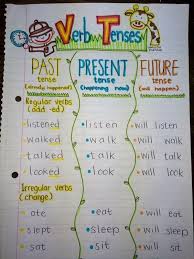 Verb Tenses
PAST PRESENT FUTURE
tense tense tense
(already happened) (happening now) (will happen)
Regular verbs
(add -ed)
listened •listen •will listen
walked •walk •will walk
talked •talk •will talk
looked •look •will look
Irregular verbs
(change)
•ate •eat •will eat
•slept •sleep •will sleep
•sat •sit •will sit